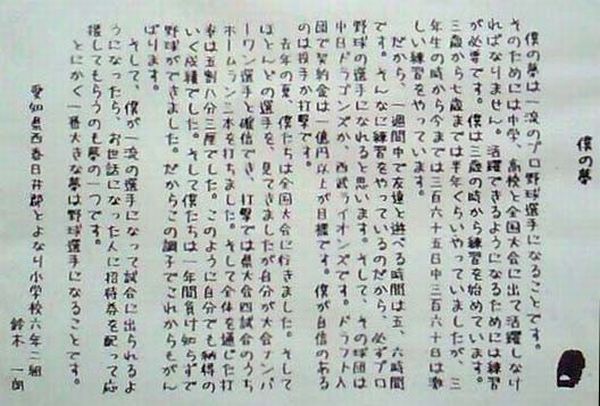 僕の夢
僕の夢は一流のプロ野球選手になることです。
そのためには中学、高校と全国大会に出て活躍しなけ
ればなりません。活躍できるようになるためには練習
が必要です。僕は三歳の時から練習を始めています。
三歳から七歳までは半年くらいやっていましたが、三
年生の時から今までは三百六十五日中三百六十日は激
しい練習をやっています。
だから、一週間中で友達と遊べる時間は五、六時間
です。そんなに練習をやっているのだから、必ずプロ
野球の選手になれると思います。そして、その球団は
中日ドラゴンズか、西武ライオンズです。ドラフト入
団で契約金は一億円以上が目標です。僕が自信のある
のは投手か打撃です。
去年の夏、僕たちは全国大会に行きました。そして
ほとんどの選手を、見てきましたが自分が大会ナンバ
ーワン選手と確信でき、打撃では県大会四試合のうち
ホームラン三本を打ちました。そして全体を通じた打
率は五割八分三厘でした。このように自分でも納得の
いく成績でした。そして僕たちは一年間負け知らずで
野球ができました。だからこの調子でこれからもがん
ばります。
そして、僕が一流の選手になって試合に出られるよ
うになったら、お世話になった人に招待券を配って応
援してもらうのも夢の一つです。
とにかく一番大きな夢は野球選手になることです。
愛知県西春日井郡とよなり小学校六年二組
鈴木一朗